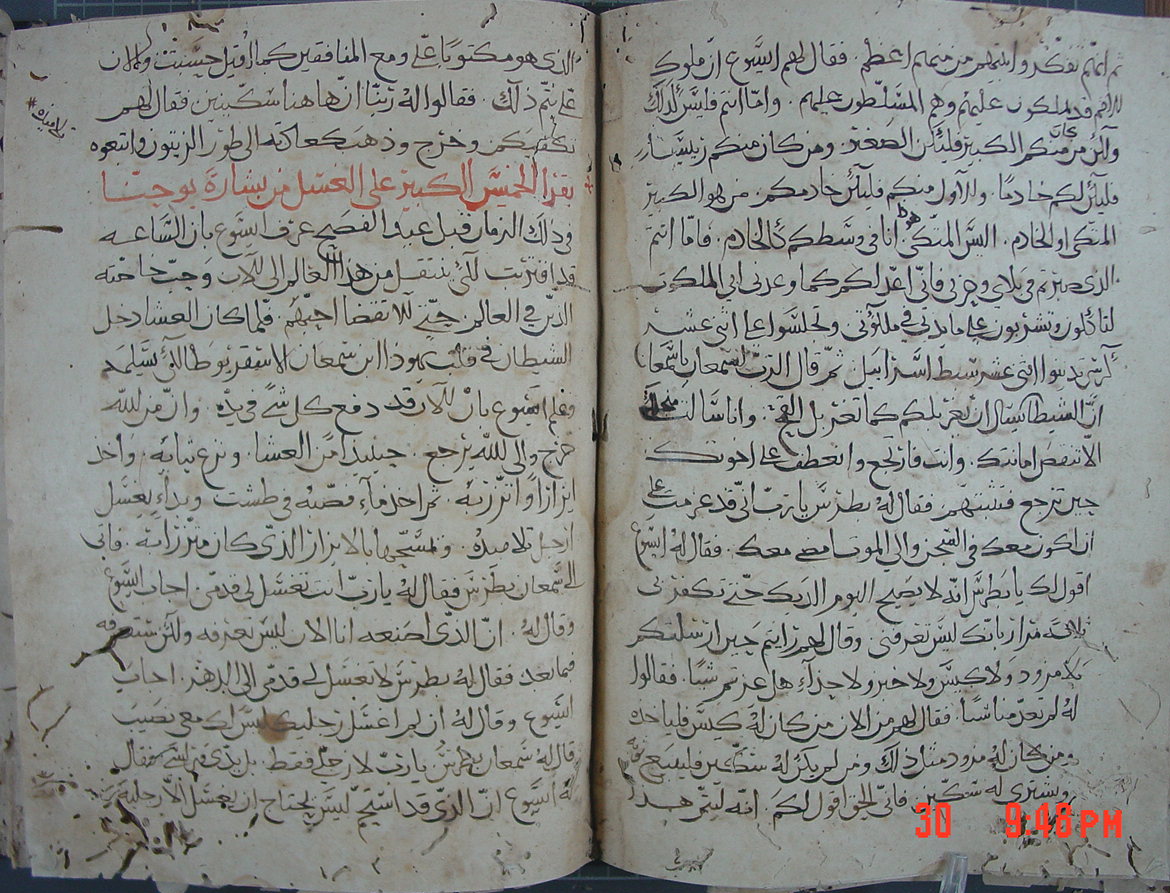 ثم انهم تفكروا منهم من منهم اعظم . فقال لهم ايسوع ان ملوك
الامم قد يملكون عليهم وهم المسلطون عليهم . واما انتم فليس كذلك
منكم الكبير فليكن كالصغير . ومن كان منكم
فليكن لكم خادما . والاول منكم فليكن خادمكم . من هو الكبير
المتكى او الخادم . اليس المتكى هو . انا في وسطكم كالخادم . فاما انتم
الذي صبرتم في بلاي وحزني فاني اعد لكم كما وعدني ابي الملكوت
لتاكلون وتشربون على مايدتي في ملكوتي وتجلسوا على اثنى عشر
كرسي تدينوا اثنى عشر سبط اسرابيل ثم قال الرب لسمعان يا سمعان
ان الشيطان يسال ان يغربلكم كما تغربل القمح . وانا سالت
الا تنقص امانتك . وانت فارجع وانعطف على اخوتك
حين ترجع فتثبتهم . فقال له بطرس يا رب اني قد عزمت على
ان اكون معك في السجن والى الموت امضي معك . فقال له ايسوع
اقول لك يا بطرس انه لا يصيح اليوم الديك حتى تكفر بي
ثلاثة مرار بانك ليس تعرفني . وقال لهم رايتم حين ارسلتكم
بلا مزود ولا كيس ولا خبز ولا حذاء هل عزتم شيا . فقالوا
له لم تعزنا شيا . فقال لهم من الان من كان له كيس فلياخذه
ومن كان له مزود مثل ذلك ومن لم يكن له سكين فليبيع
ويشتري له سكين . فاني الحق اقول لكم . انه ليتم هذا
الذي هو مكتوبا علي ومع المنافقين كمال وقيل حسبت والان
علي يتم ذلك . فقالوا له ربنا ان هاهنا سكينين فقال لهم
تكفيكم وخرج وذهب كعادته الى طور الزيتون واتبعوه
يقرا الخميس الكبير على الغسل من بشارة يوحنا
في ذلك الزمان قبل عيد الفصح عرف ايسوع بان الساعه
قد اقتربت لكي ينتقل من هذا العالم الى الاب وحب خاصته
الذين في العالم . حتى للانقضا احبهم . فلما كان العشا دخل
الشيطان في قلب يهودا ابن سمعان الاسخريوطا لكي يسلمه
وعلم ايسوع بان الاب قد دفع كل شي في يده . وان من الله
خرج والى الله يرجع . حينيذ قام من العشا . ونزع ثيابه . واخذ
ايزارا واتزر به . ثم اخذ ماء فصبه في طشت . وبداء يغسل
ارجل تلاميذه . ويمسحها بالايزار الذي كان متزرا به . فاتى
الى سمعان بطرس فقال له يا رب انت تغسل لي قدمي اجاب ايسوع
وقال له . ان الذي اصنعه انا الان ليس تعرفه ولكن ستعرفه
فيما بعد فقال له بطرس لا تغسل لي قدمي الى الدهر . اجاب
ايسوع وقال له ان لم اغسل رجليك ليس لك معي نصيب
قال له سمعان بطرس يا رب لا رجلي فقط . بل يدي وراسي . فقال
له ايسوع ان الذي قد استحم ليس يحتاج ان يغسل الا رجليه
30 9:46PM